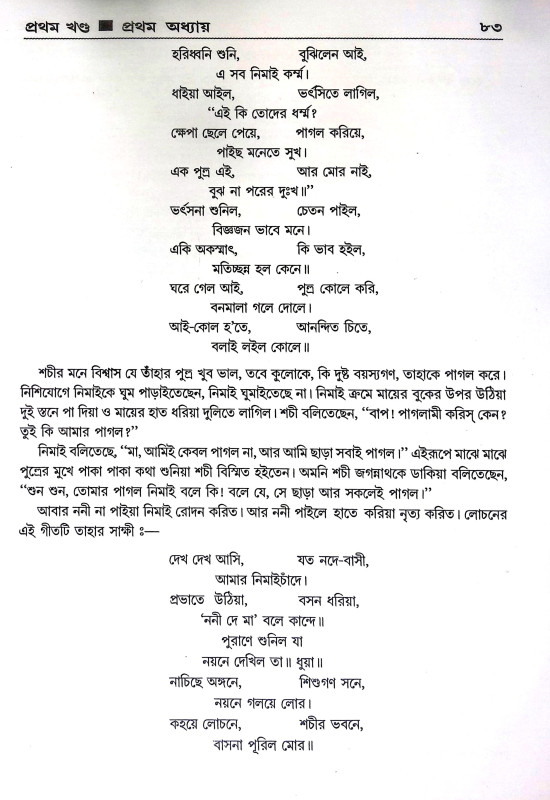 প্রথম খণ্ড ■ প্রথম অধ্যায় ৮৩
হরিধ্বনি শুনি, বুঝিলেন আই,
এ সব নিমাই কর্ম্ম।
ধাইয়া আইল, ভর্ৎসিতে লাগিল,
“এই কি তোদের ধর্ম্ম?
ক্ষেপা ছেলে পেয়ে, পাগল করিয়ে,
পাইছ মনেতে সুখ।
এক পুত্র এই, আর মোর নাই,
বুঝ না পরের দুঃখ॥”
ভর্ৎসনা শুনিল, চেতন পাইল,
বিজ্ঞজন ভাবে মনে।
একি অকস্মাৎ, কি ভাব হইল,
মতিচ্ছন্ন হল কেনে॥
ঘরে গেল আই, পুত্র কোলে করি,
বনমালা গলে দোলে।
আই-কোল হ’তে, আনন্দিত চিতে,
বলাই লইল কোলে॥
শচীর মনে বিশ্বাস যে তাঁহার পুত্র খুব ভাল, তবে কুলোকে, কি দুষ্ট বয়স্যগণ, তাহাকে পাগল করে।
নিশিযোগে নিমাইকে ঘুম পাড়াইতেছেন, নিমাই ঘুমাইতেছে না। নিমাই ক্রমে মায়ের বুকের উপর উঠিয়া
দুই স্তনে পা দিয়া ও মায়ের হাত ধরিয়া দুলিতে লাগিল। শচী বলিতেছেন, “বাপ! পাগলামী করিস্ কেন?
তুই কি আমার পাগল?”
নিমাই বলিতেছে, “মা, আমিই কেবল পাগল না, আর আমি ছাড়া সবাই পাগল।” এইরূপে মাঝে মাঝে
পুত্রের মুখে পাকা পাকা কথা শুনিয়া শচী বিস্মিত হইতেন। অমনি শচী জগন্নাথকে ডাকিয়া বলিতেছেন,
“শুন শুন, তোমার পাগল নিমাই বলে কি! বলে যে, সে ছাড়া আর সকলেই পাগল।”
আবার ননী না পাইয়া নিমাই রোদন করিত। আর ননী পাইলে হাতে করিয়া নৃত্য করিত। লোচনের
এই গীতটি তাহার সাক্ষী ঃ—
দেখ দেখ আসি, যত নদে-বাসী,
আমার নিমাইচাঁদে।
প্রভাতে উঠিয়া, বসন ধরিয়া,
‘ননী দে মা’ বলে কান্দে॥
পুরাণে শুনিল যা
নয়নে দেখিল তা॥ ধুয়া॥
নাচিছে অঙ্গনে, শিশুগণ সনে,
নয়নে গলয়ে লোর।
কহয়ে লোচনে, শচীর ভবনে,
বাসনা পূরিল মোর॥